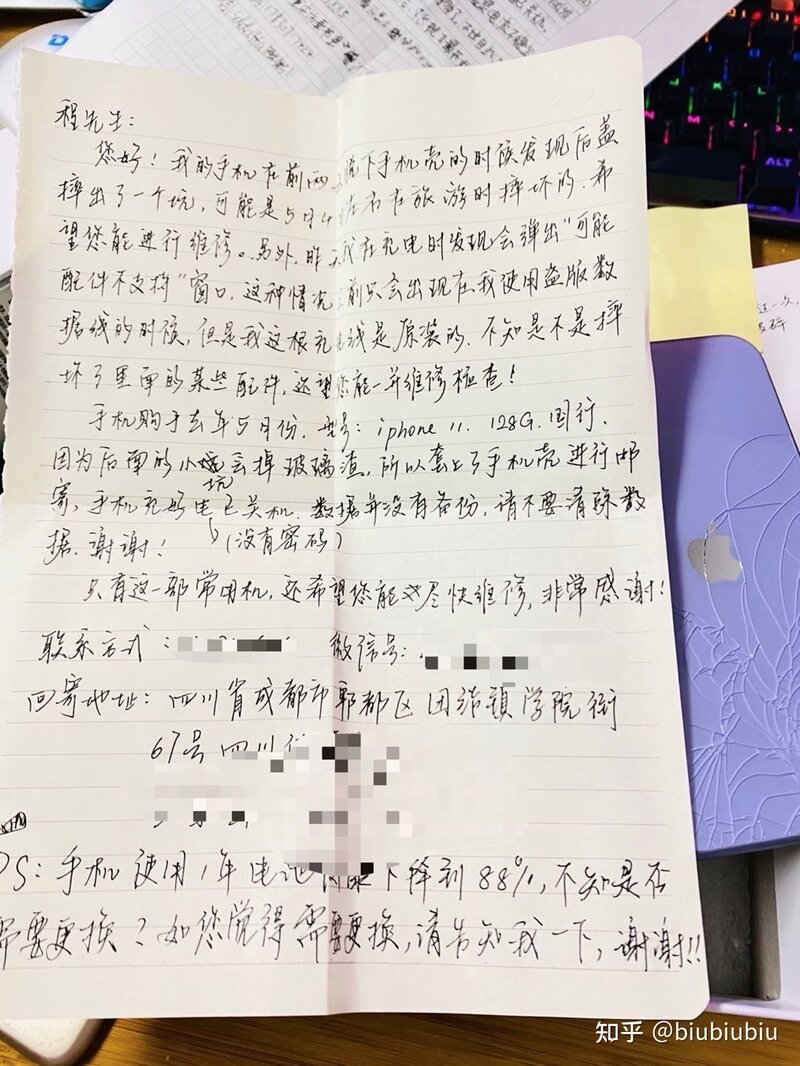 程先生：
您好！我的手机在前两 脱下手机壳的时候发现后盖
摔出了一个坑，可能是5月4 左右在旅游时摔坏的．希
望您能进行维修。另外，昨天我在充电时发现会弹出“可能
配件不支持”窗口．这种情况 前只会出现在我使用盗版数
据线的时候，但是我这根充电线是原装的．不知是不是摔
坏了里面的某些配件，还望您能一并维修检查！
手机购于去年5月份．型号：iphone 11．128G．国行．
因为后面的小坑会掉玻璃渣，所以套上了手机壳进行邮
寄，手机充好电已关机．数据并没有备份，请不要清除数
据．谢谢！（没有密码）
只有这一部常用机，还希望您能尽快维修，非常感谢！
联系方式： 微信号：
回寄地址：四川省成都市郫都区团结镇学院街
67号四川
PS：手机使用1年电池 下降到88%，不知是否
需要更换？如您觉得需要更换，请告知我一下，谢谢!!
ALT
知乎 @biubiubiu